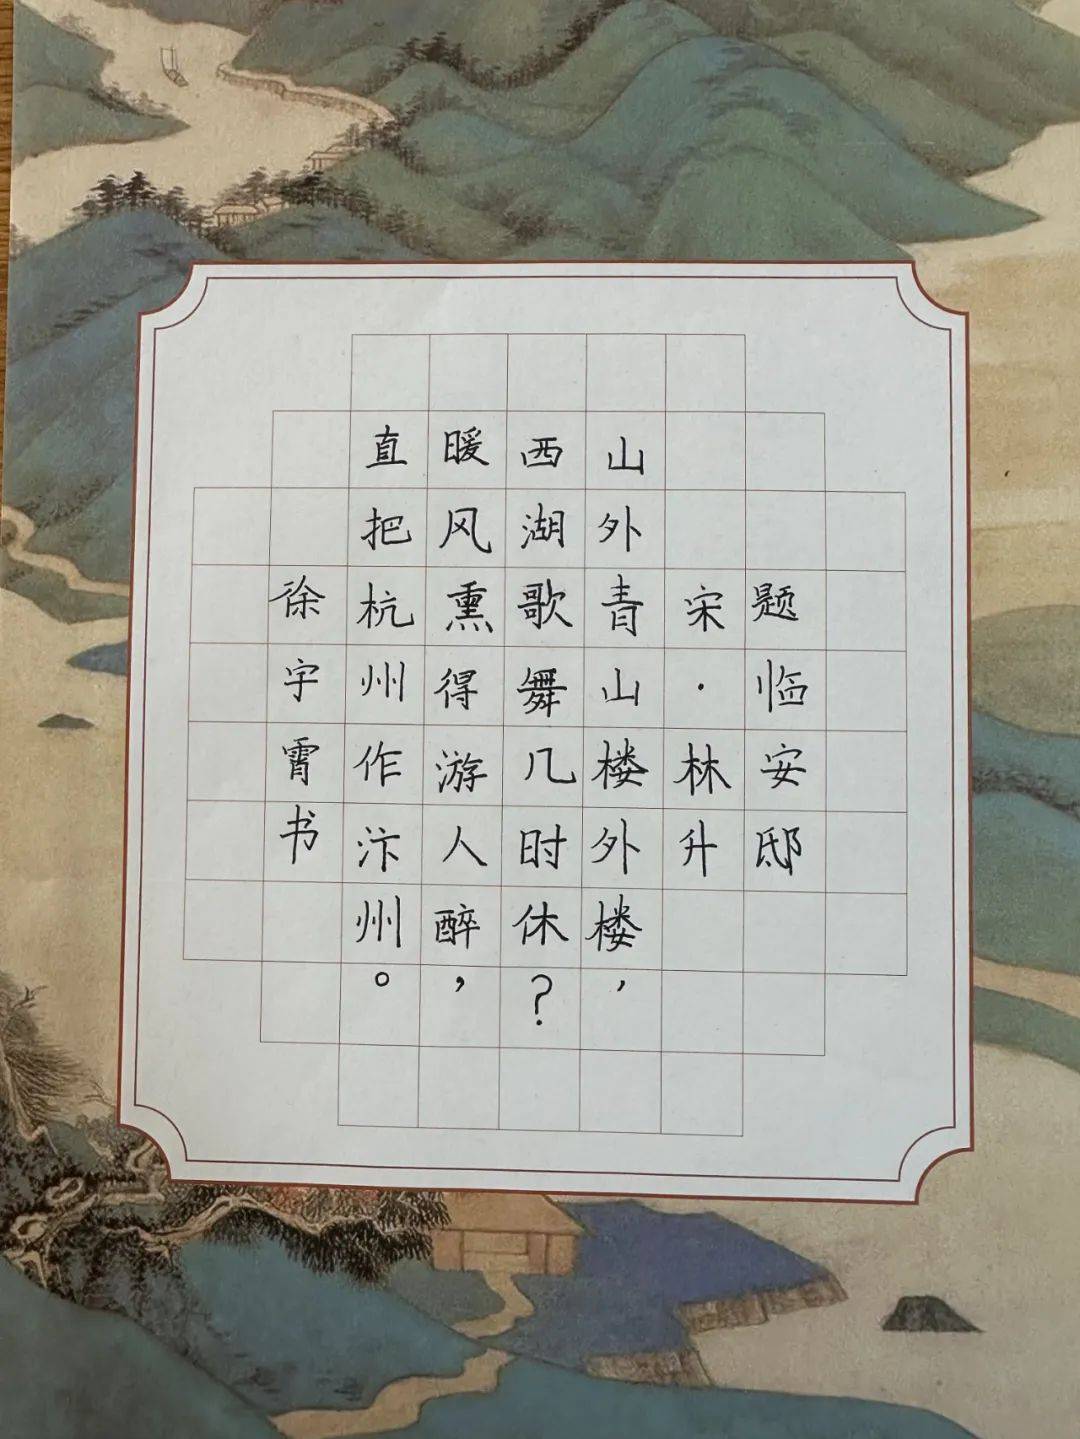 题临安邸
宋·林升
山外青山楼外楼，
西湖歌舞几时休？
暖风熏得游人醉，
直把杭州作汴州。
徐宇霄书